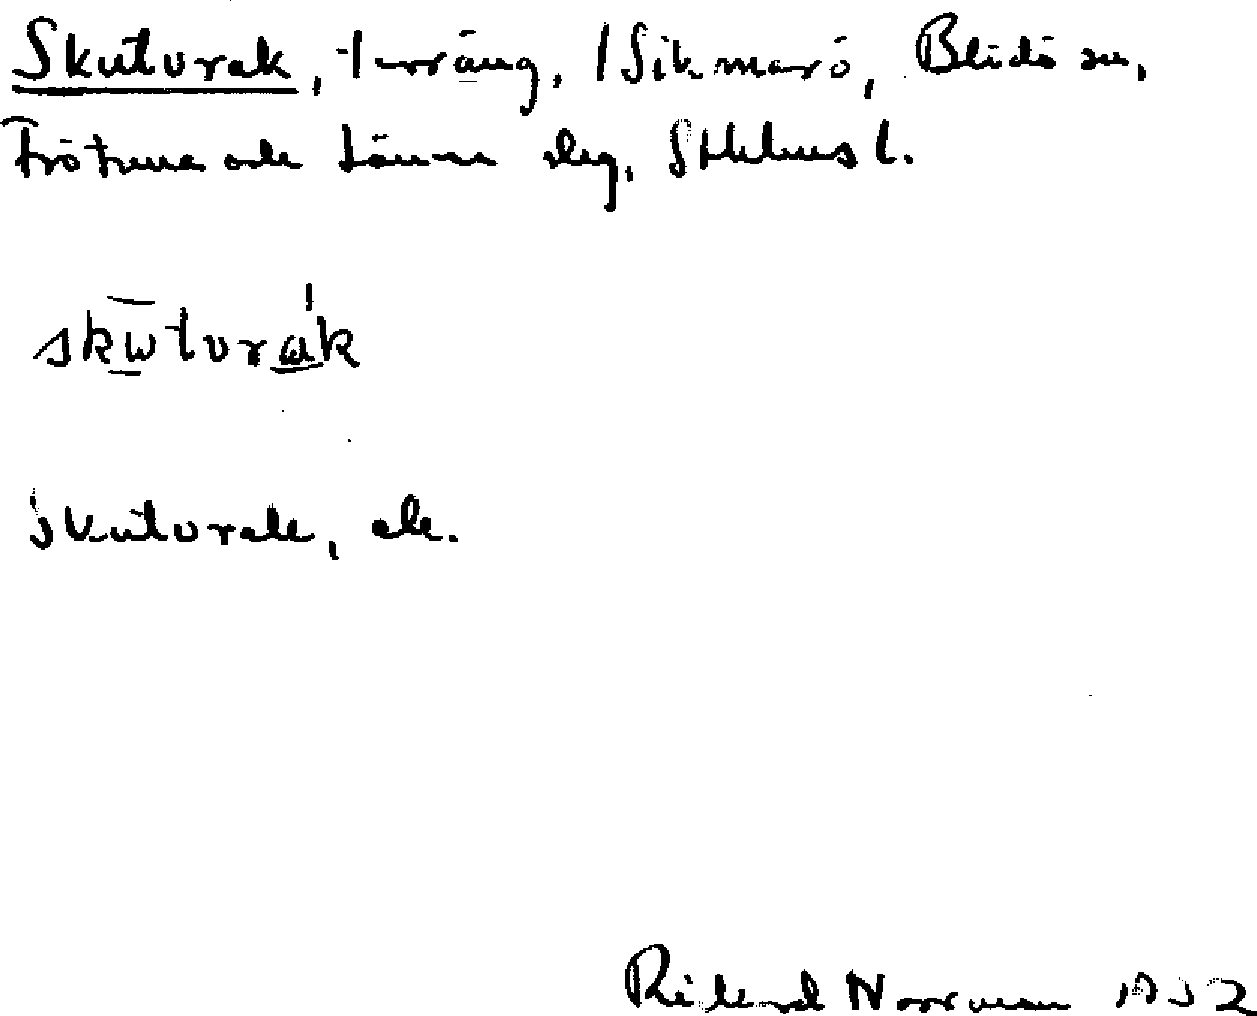 Skutvrak, terräng, / Sikmarö, Blidö sn,
Frötuna och Länna skg, Sthlms l.
skutvrak
skutvrak, ak.
Rickard Norrman 1932